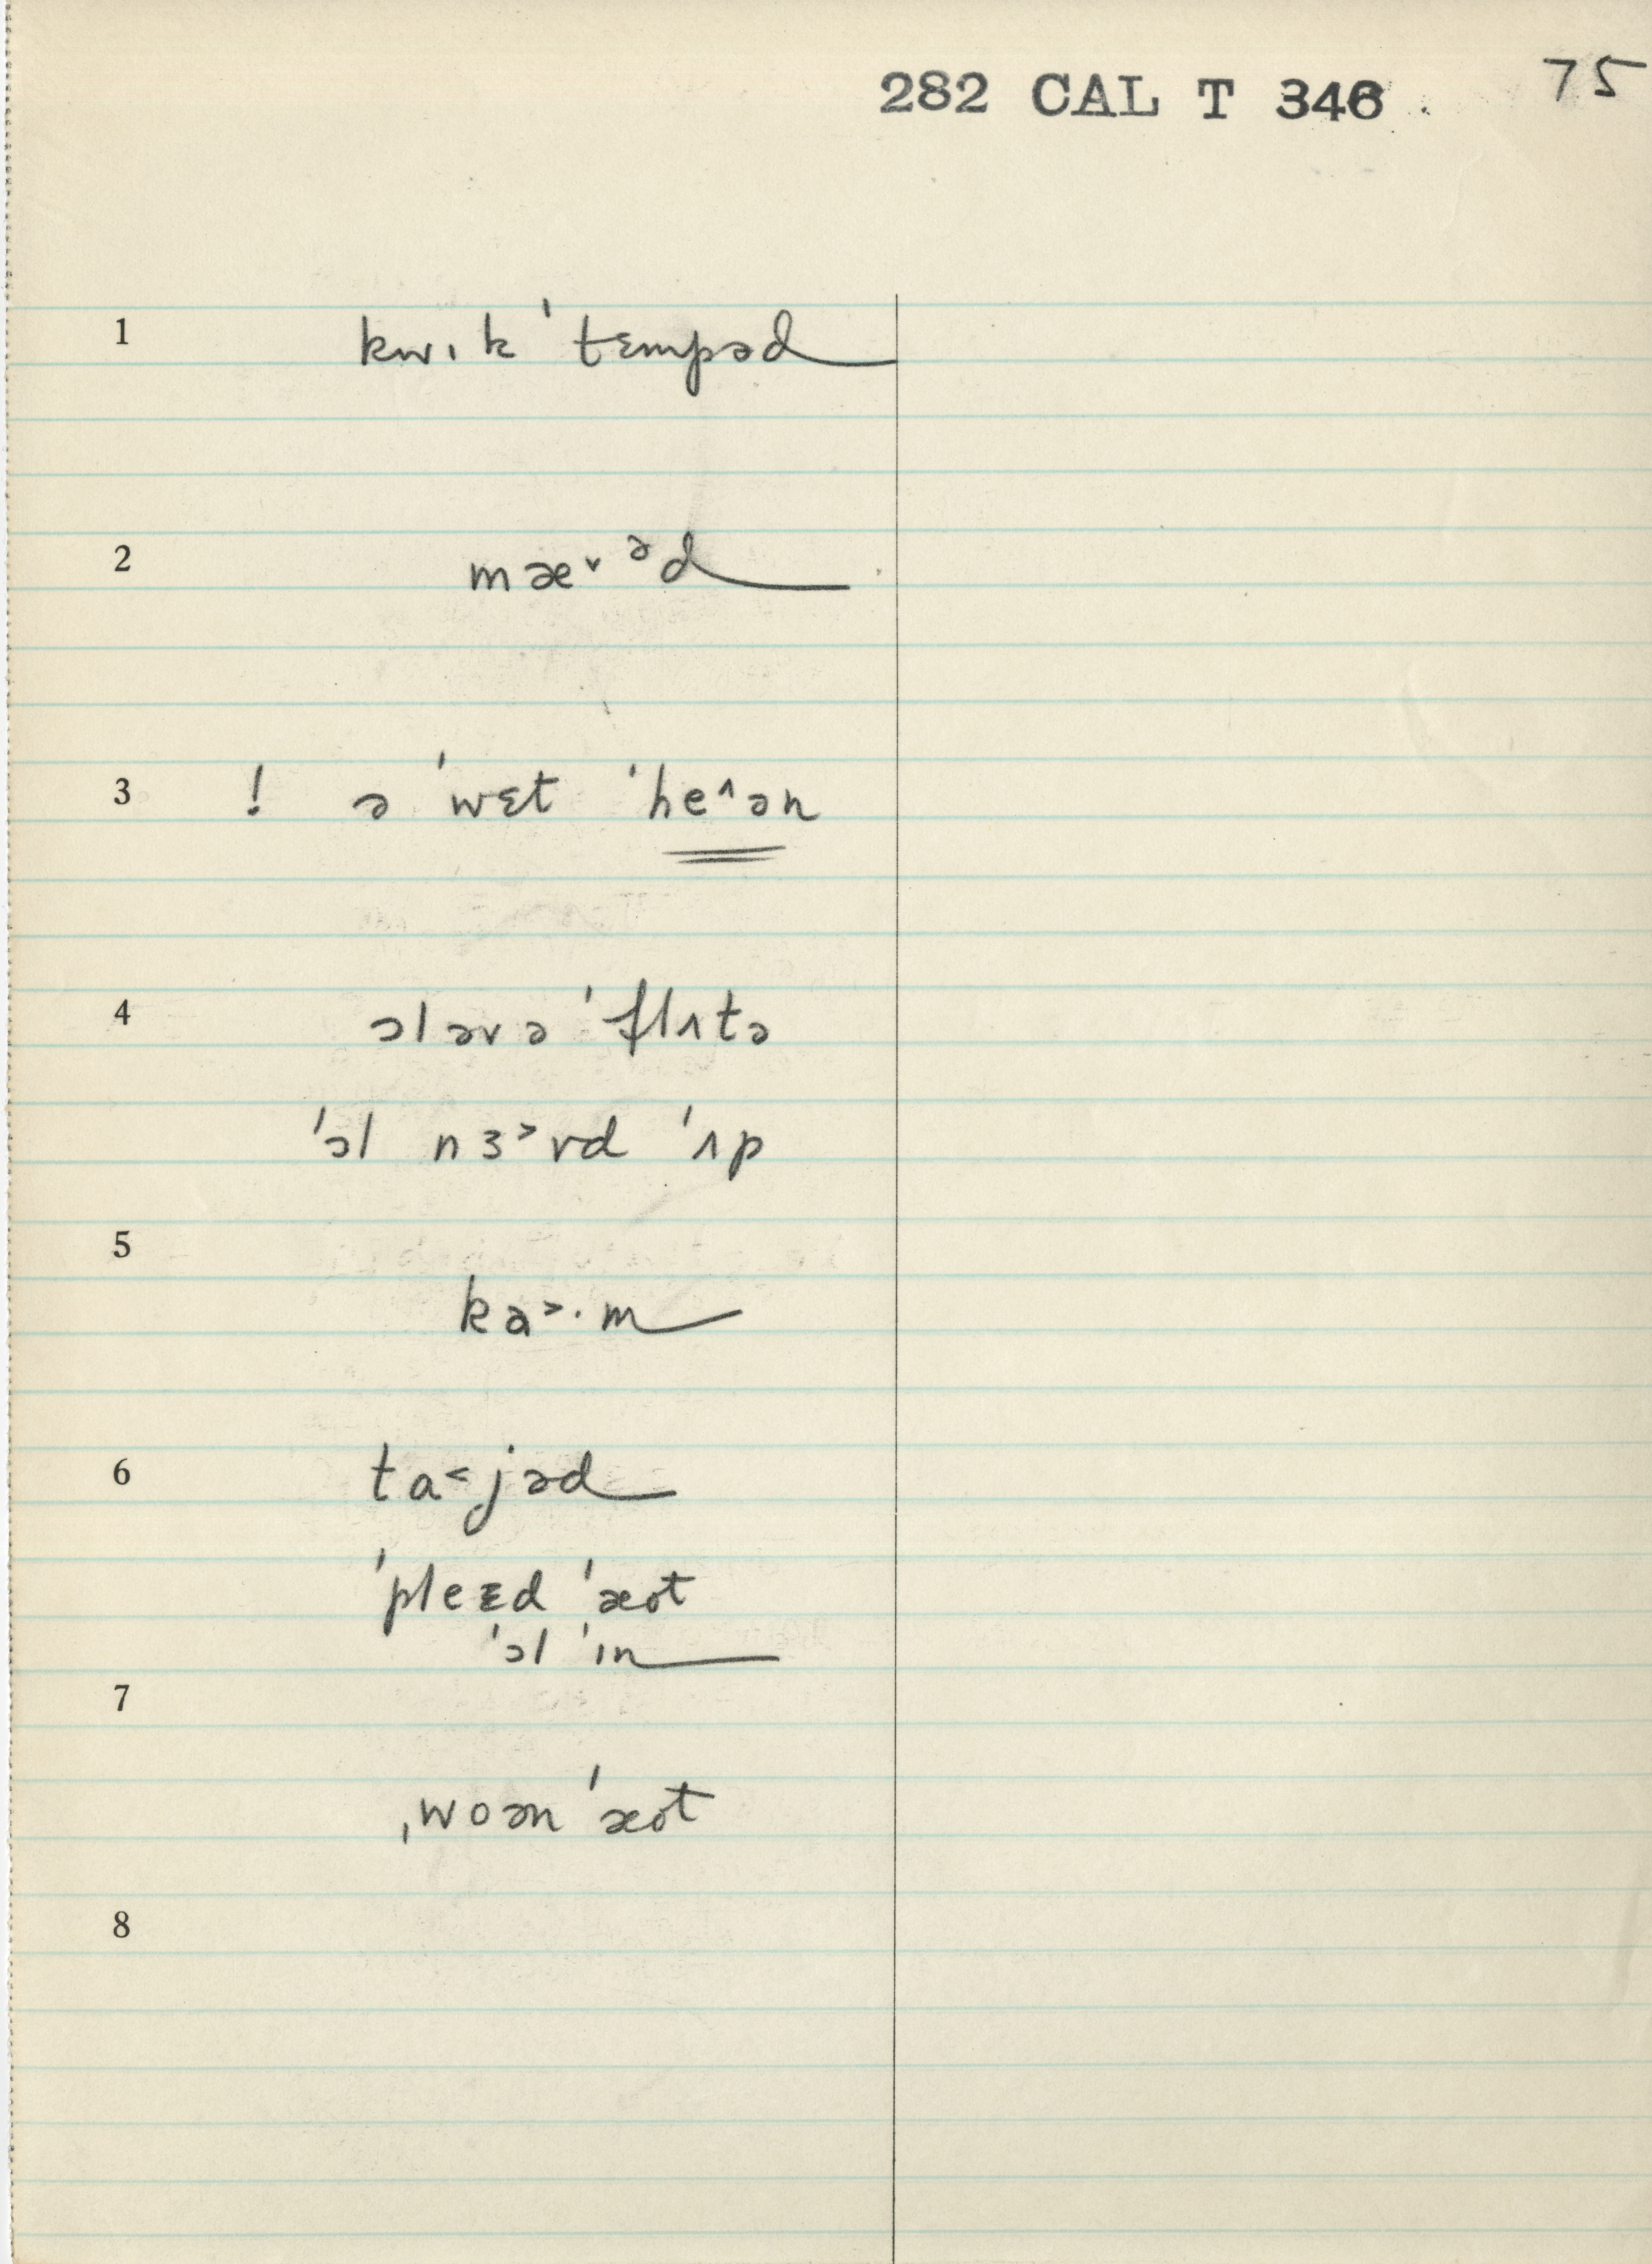 282 CAL T 346 75
1 kwɪk ˈtɛmpəd
2 mæ˅ ᵊd
3 ! ə ˈwɛt ˈhe˄ən
4 ɔləvə ˈflʌtə
ˈɔl nɜ˃vd ˈʌp
5
ka˃·m
6 ta˂jəd
ˈpleɛd ˈæot
ˈɔl ˈɪn
7
ˌwoən ˈæot
8